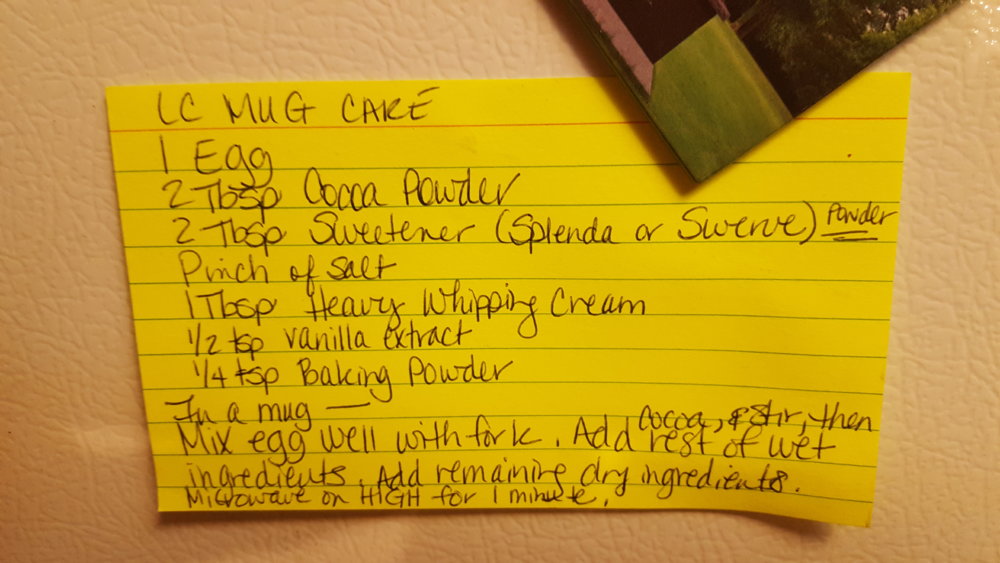 LC MUG CAKE
1 Egg
2 Tbsp Cocoa Powder
2 Tbsp Sweetener (Splenda or Swerve) Powder
Pinch of Salt
1 Tbsp Heavy Whipping Cream
1/2 tsp vanilla extract
1/4 tsp Baking Powder
In a mug —
Mix egg well with fork. Add cocoa, & stir, then rest of wet
ingredients. Add remaining dry ingredients.
Microwave on HIGH for 1 minute.